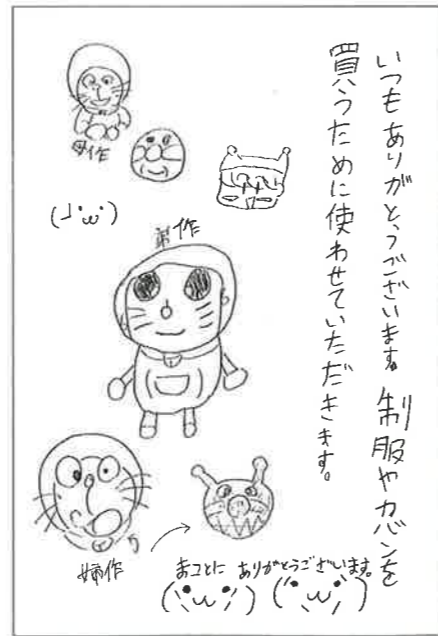 いつもありがとうございます。制服やカバンを
買うために使わせていただきます。
母作
弟作
姉作
まコトに ありがとうございます。